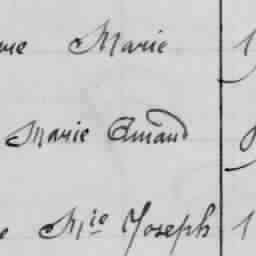 Marie
Marie Amand
Mie Joseph